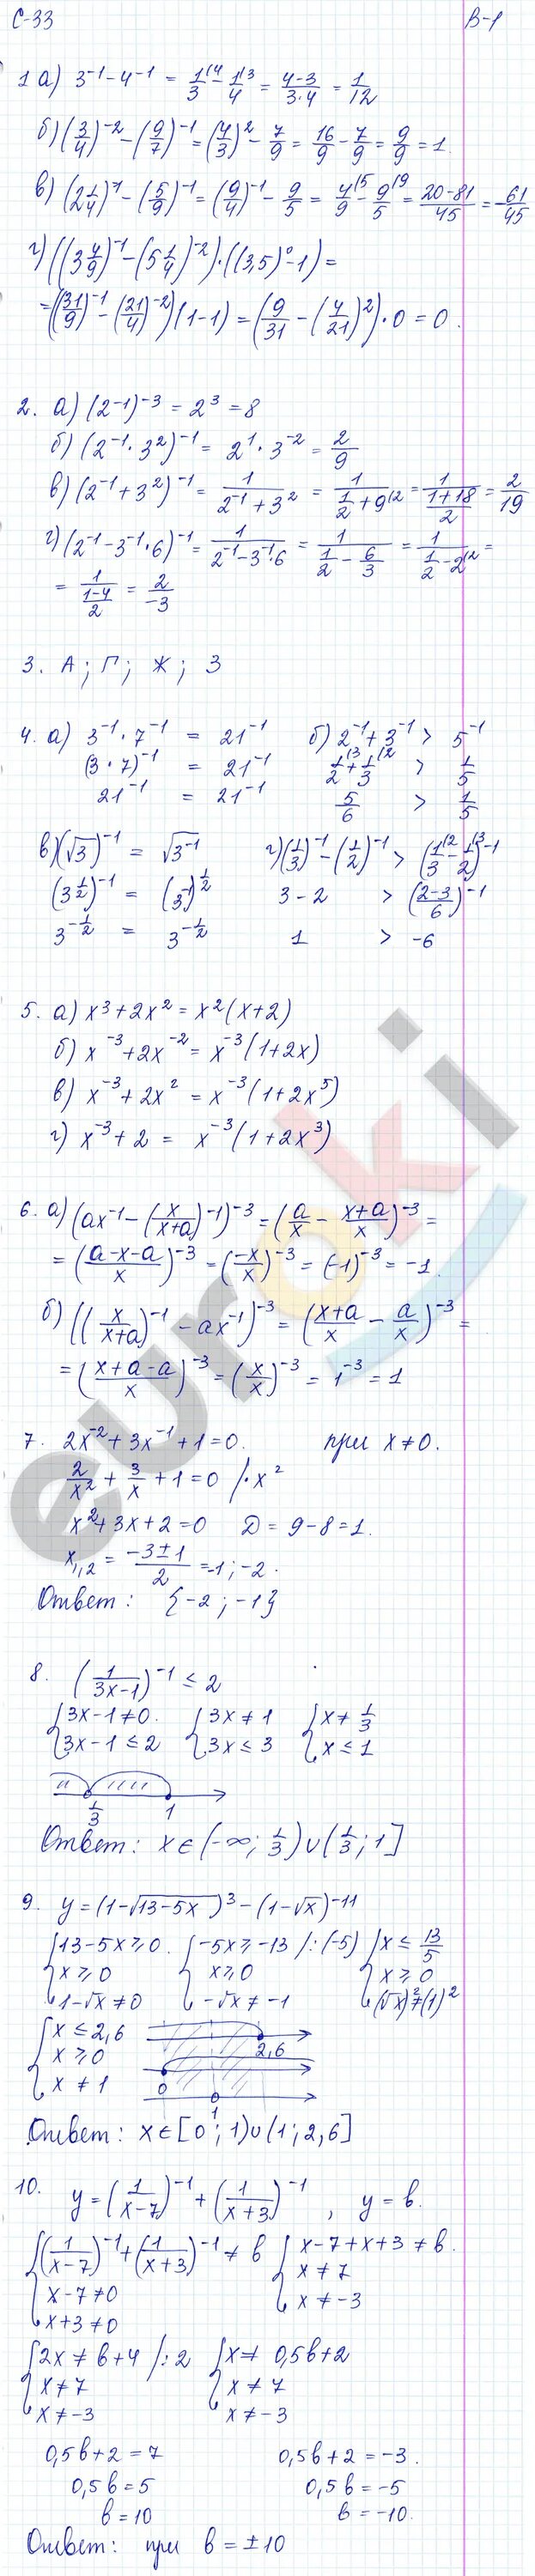 С-33 В-1
1 а) 3⁻¹ - 4⁻¹ = 1/3 ⁽⁴ - 1/4 ⁽³ = (4-3)/(3·4) = 1/12
б) (3/4)⁻² - (9/7)⁻¹ = (4/3)² - 7/9 = 16/9 - 7/9 = 9/9 = 1.
в) (2 1/4)⁻¹ - (5/9)⁻¹ = (9/4)⁻¹ - 9/5 = 4/9 ⁽⁵ - 9/5 ⁽⁹ = (20-81)/45 = -61/45
г) ((3 4/9)⁻¹ - (5 1/4)⁻²)·((3,5)⁰ - 1) =
= ((31/9)⁻¹ - (21/4)⁻²)(1-1) = (9/31 - (4/21)²)·0 = 0.
2. а) (2⁻¹)⁻³ = 2³ = 8
б) (2⁻¹·3²)⁻¹ = 2¹·3⁻² = 2/9
в) (2⁻¹+3²)⁻¹ = 1/(2⁻¹+3²) = 1/(1/2+9⁽²) = 1/((1+18)/2) = 2/19
г) (2⁻¹-3⁻¹·6)⁻¹ = 1/(2⁻¹-3⁻¹·6) = 1/(1/2 - 6/3) = 1/(1/2-2⁽²) =
= 1/((1-4)/2) = 2/-3
3. А; Г; Ж; З
4. а) 3⁻¹·7⁻¹ = 21⁻¹ б) 2⁻¹+3⁻¹ > 5⁻¹
(3·7)⁻¹ = 21⁻¹ 1/2 ⁽³ + 1/3 ⁽² > 1/5
21⁻¹ = 21⁻¹ 5/6 > 1/5
в) (√3)⁻¹ = √3⁻¹ г) (1/3)⁻¹ - (1/2)⁻¹ > (1/3 ⁽² - 1/2 ⁽³)⁻¹
(3^(1/2))⁻¹ = (3⁻¹)^(1/2) 3-2 > ((2-3)/6)⁻¹
3^(-1/2) = 3^(-1/2) 1 > -6
5. а) x³+2x² = x²(x+2)
б) x⁻³+2x⁻² = x⁻³(1+2x)
в) x⁻³+2x² = x⁻³(1+2x⁵)
г) x⁻³+2 = x⁻³(1+2x³)
6. а) (ax⁻¹ - (x/(x+a))⁻¹)⁻³ = (a/x - (x+a)/x)⁻³ =
= ((a-x-a)/x)⁻³ = (-x/x)⁻³ = (-1)⁻³ = -1.
б) ((x/(x+a))⁻¹ - ax⁻¹)⁻³ = ((x+a)/x - a/x)⁻³ =
= ((x+a-a)/x)⁻³ = (x/x)⁻³ = 1⁻³ = 1
7. 2x⁻²+3x⁻¹+1=0. при x≠0.
2/x² + 3/x + 1 = 0 /·x²
x²+3x+2=0 Д = 9-8 = 1.
x₁,₂ = (-3±1)/2 = -1; -2.
Ответ: {-2; -1}
8. (1/(3x-1))⁻¹ ≤ 2
{3x-1≠0. {3x≠1 {x≠1/3
{3x-1≤2 {3x≤3 {x≤1
1/3 1
Ответ: x∈(-∞; 1/3)∪(1/3; 1]
9. y = (1-√(13-5x))³ - (1-√x)⁻¹¹
{13-5x≥0. {-5x≥-13 /:(-5) {x≤13/5
{x≥0 {x≥0 {x≥0
{1-√x≠0 {-√x≠-1 {(√x)²≠(1)²
{x≤2,6 2,6
{x≥0 0
{x≠1 1
Ответ: x∈[0; 1)∪(1; 2,6]
10. y = (1/(x-7))⁻¹ + (1/(x+3))⁻¹, y = b.
{(1/(x-7))⁻¹ + (1/(x+3))⁻¹ ≠ b {x-7+x+3≠b.
{x-7≠0 {x≠7
{x+3≠0 {x≠-3
{2x≠b+4 /:2 {x≠0,5b+2
{x≠7 {x≠7
{x≠-3 {x≠-3
0,5b+2=7 0,5b+2=-3.
0,5b=5 0,5b=-5
b=10 b=-10.
Ответ: при b=±10
euroki